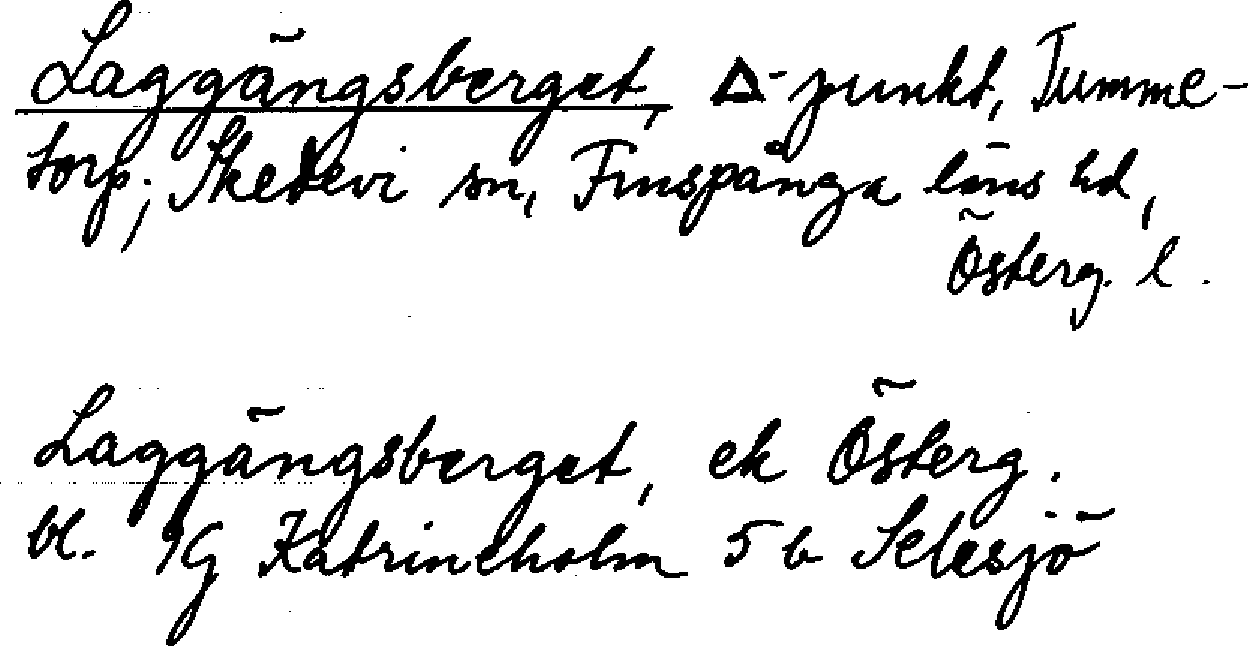 Laggängsberget, Δ-punkt, Tumme-
torp; Skedevi sn, Finspånga läns hd,
Österg. l.
Laggängsberget, ek Österg.
bl. 9G Katrineholm 5 b Selesjö